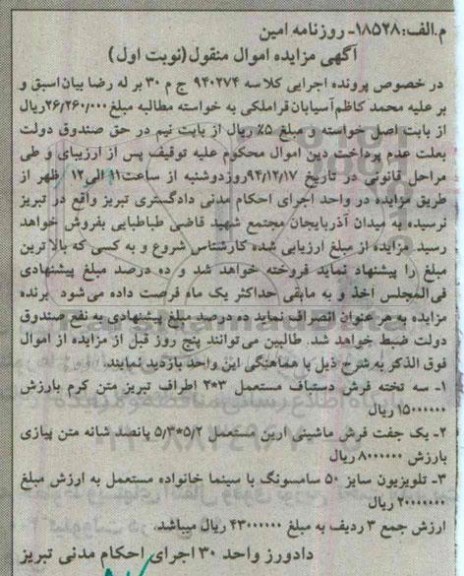 م.الف:۱۸۵۲۸- روزنامه امین
آگهی مزایده اموال منقول(نوبت اول)
در خصوص پرونده اجرایی کلاسه ۹۴۰۲۷۴ ج م ۳۰ بر له رضا بیان اسبق و
بر علیه محمد کاظم آسیابان قراملکی به خواسته مطالبه مبلغ ۲۶/۲۶۰/۰۰۰ریال
از بابت اصل خواسته و مبلغ ۵٪ ریال از بابت نیم در حق صندوق دولت
بعلت عدم پرداخت دین اموال محکوم علیه توقیف پس از ارزیابی و طی
مراحل قانونی در تاریخ ۹۴/۱۲/۱۷روزدوشنبه از ساعت۱۱ الی۱۲ ظهر از
طریق مزایده در واحد اجرای احکام مدنی دادگستری تبریز واقع در تبریز
نرسیده به میدان آذربایجان مجتمع شهید قاضی طباطبایی بفروش خواهد
رسید. مزایده از مبلغ ارزیابی شده کارشناس شروع و به کسی که بالاترین
مبلغ را پیشنهاد نماید فروخته خواهد شد و ده درصد مبلغ پیشنهادی
فی‌المجلس اخذ و به مابقی حداکثر یک ماه فرصت داده می‌شود برنده
مزایده به هر عنوان انصراف نماید ده درصد مبلغ پیشنهادی به نفع صندوق
دولت ضبط خواهد شد. طالبین می‌توانند پنج روز قبل از مزایده از اموال
فوق الذکر به شرح ذیل با هماهنگی این واحد بازدید نمایند.
۱- سه تخته فرش دستباف مستعمل ۳*۲ اطراف تبریز متن کرم بارزش
۱۵۰۰۰۰۰۰ ریال
۲- یک جفت فرش ماشینی ارین مستعمل ۵/۲*۵/۳ پانصد شانه متن پیازی
بارزش ۸۰۰۰۰۰۰ ریال
۳- تلویزیون سایز ۵۰ سامسونگ با سینما خانواده مستعمل به ارزش مبلغ
۲۰۰۰۰۰۰۰ ریال
ارزش جمع ۳ ردیف به مبلغ ۴۳۰۰۰۰۰۰ ریال میباشد.
دادورز واحد ۳۰ اجرای احکام مدنی تبریز